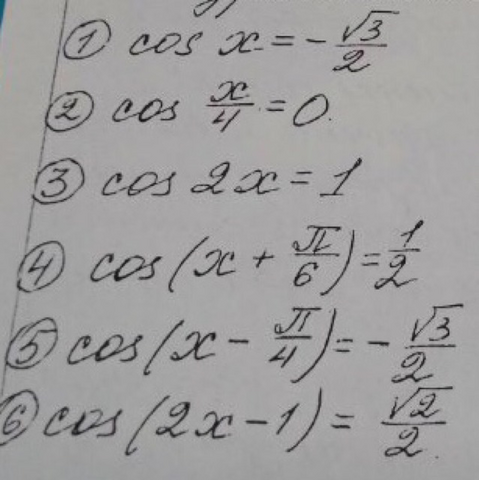 ① cos x = -√3/2
② cos x/4 = 0.
③ cos 2x = 1
④ cos(x + π/6) = 1/2
⑤ cos(x - π/4) = -√3/2
⑥ cos(2x - 1) = √2/2.